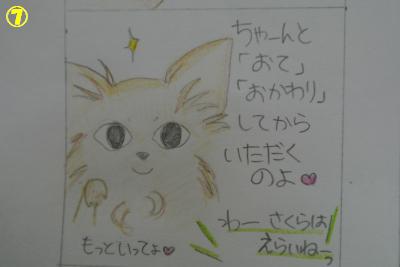 7
ちゃーんと
「おて」
「おかわり」
してから
いただく
のよ♥
わー さくらは
えらいねーっ
もっといってょ♥